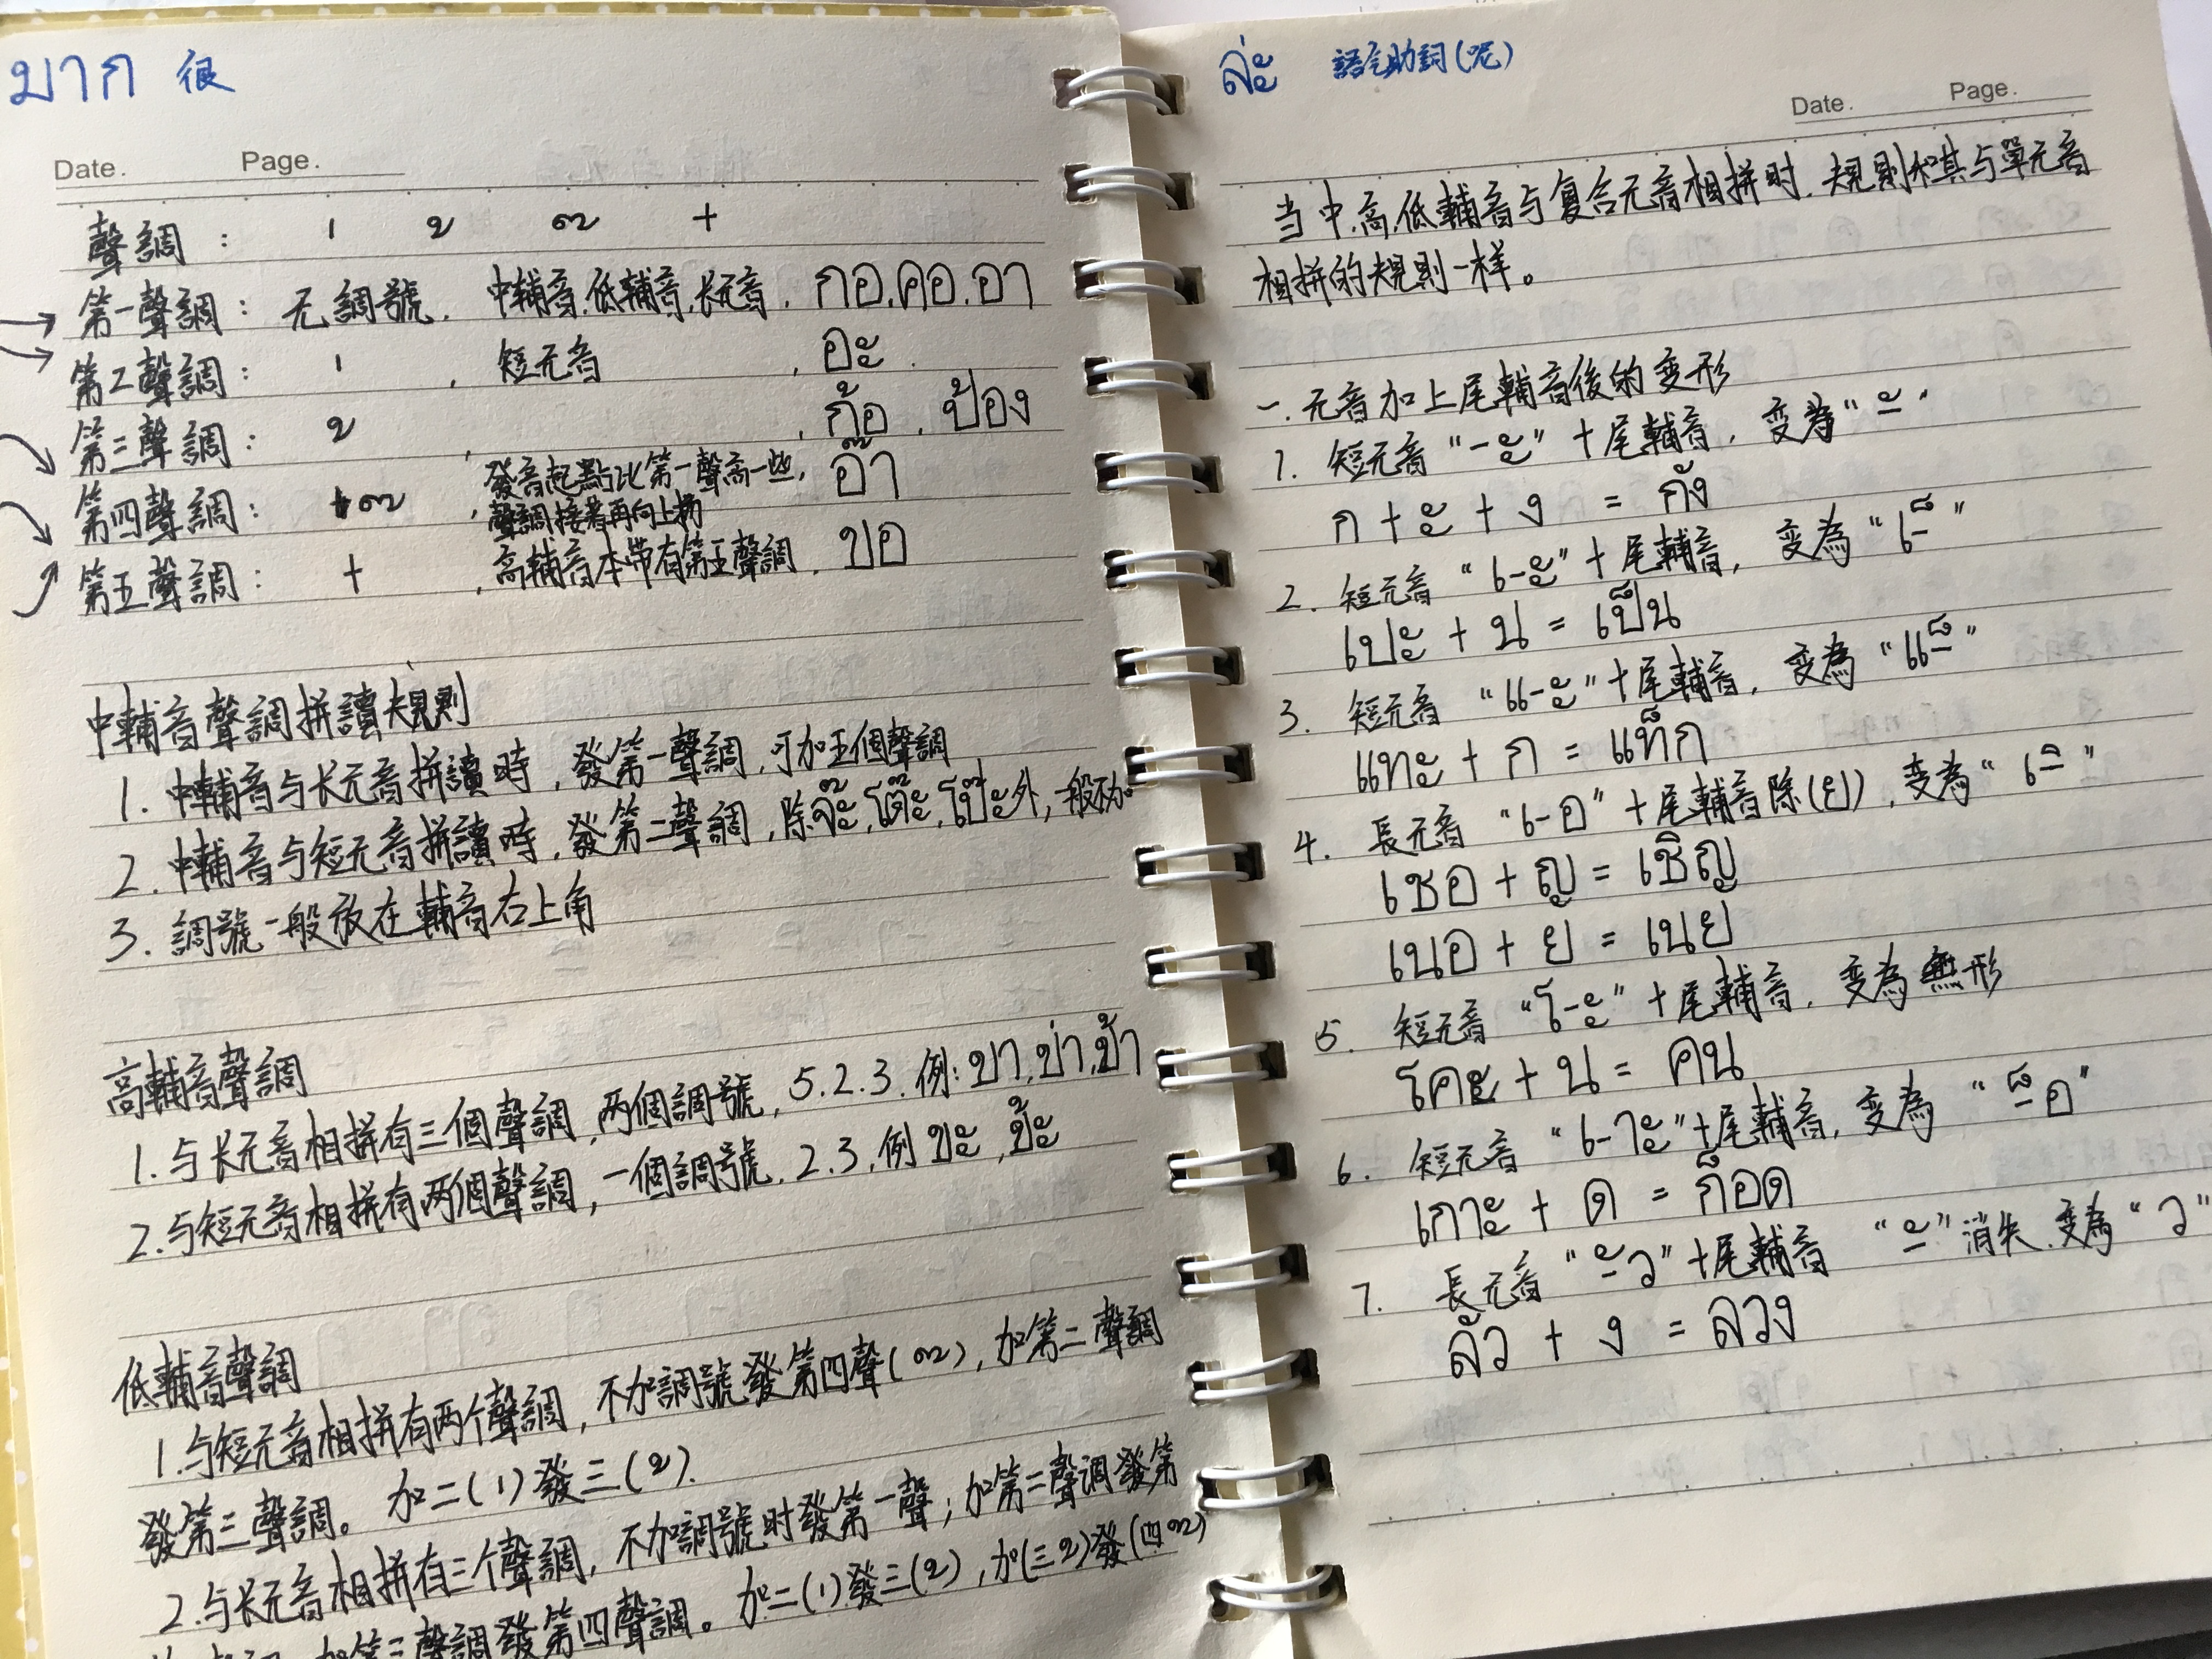 มาก 很
Date. Page.
聲調： ่ ้ ๊ +
第一聲調： 无調號. 中輔音.低輔音.长元音. กอ.คอ.อา
第二聲調： ่ . 短元音 , อะ.
第三聲調： ้ , ก้อ , ป้อง
第四聲調： ๊ , 發音起點比第一聲高一些, อ๊า
聲調接着再向上揚
第五聲調： + , 高輔音本帶有第五聲調. ขอ
中輔音聲調拼讀規則
1. 中輔音与长元音拼讀時,發第一聲調,可加五個聲調
2. 中輔音与短元音拼讀時,發第二聲調,除จ๊ะ,โต๊ะ,โป๊ะ外,一般不加。
3. 調號一般放在輔音右上角
高輔音聲調
1.与长元音相拼有三個聲調,两個調號,5.2.3.例:ขา,ข่า,ข้า
2.与短元音相拼有两個聲調,一個調號.2.3,例 ขะ,ข้ะ
低輔音聲調
1.与短元音相拼有两个聲調,不加調號發第四聲( ๊ ),加第二聲調
發第三聲調。加二( ่ )發三( ้ ).
2.与长元音相拼有三个聲調,不加調號时發第一聲;加第二聲调發第
加第三聲調發第四聲調。加二( ่ )發三( ้ ),加(三 ้ )發(四 ๊ )
ล่ะ 語气助詞(呢)
Date. Page.
当中.高.低輔音与复合元音相拼时.規則和其与單元音
相拼的規則一样。
一.元音加上尾輔音後的变形
1. 短元音"-ะ"+尾輔音,变為"-ั"
ก + ะ + ง = กัง
2. 短元音"เ-ะ"+尾輔音,变為"เ-็"
เปะ + น = เป็น
3. 短元音"แ-ะ"+尾輔音,变為"แ-็"
แทะ + ก = แท็ก
4. 長元音"เ-อ"+尾輔音除(ย),变為"เ-ิ"
เชอ + ญ = เชิญ
เนอ + ย = เนย
5. 短元音"โ-ะ"+尾輔音,变為無形
โคะ + น = คน
6. 短元音"เ-าะ"+尾輔音,变為"-็อ"
เกาะ + ด = ก็อด
7. 長元音"-ัว"+尾輔音 "-ั"消失.变為"ว"
ลัว + ง = ลวง